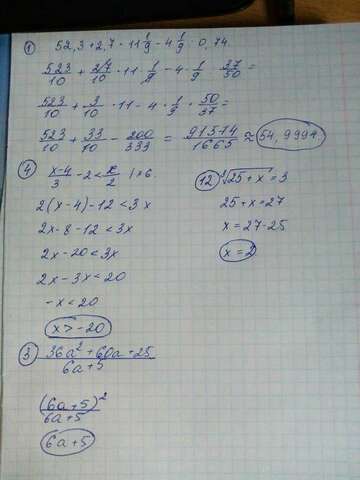 ① 52,3 + 2,7 · 11 1/9 - 4 1/9 : 0,74.
523/10 + 27/10 · 11 · 1/9 - 4 - 1/9 · 37/50 =
523/10 + 3/10 · 11 - 4 · 1/9 · 50/37 =
523/10 + 33/10 - 200/333 = 91574/1665 ≈ 54,9994
④ x-4/3 - 2 < x/2 | × 6.
2(x-4)-12 < 3x
2x-8-12 < 3x
2x-20 < 3x
2x-3x < 20
-x < 20
x > -20
⑫ √25+x = 3
25+x=27
x=27-25
x=2
③ 36a² + 60a + 25 / 6a+5
(6a+5)² / 6a+5
6a+5